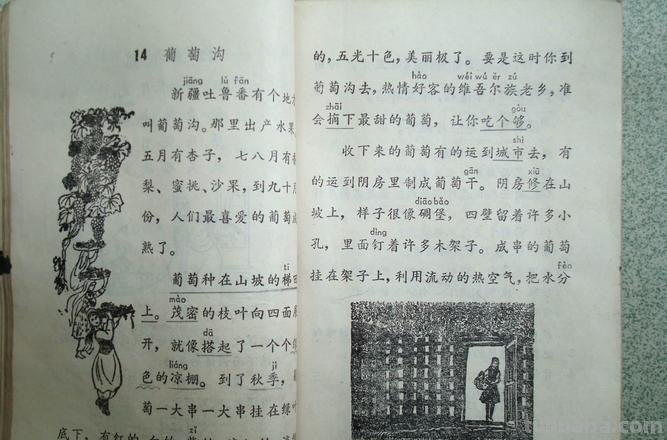 14 葡萄沟
jiāng lǔ fān
新疆吐鲁番有个地
叫葡萄沟。那里出产水果
五月有杏子，七八月有
梨、蜜桃、沙果，到九十
份，人们最喜爱的葡萄
熟了。
tī
葡萄种在山坡的梯
mào
上。茂密的枝叶向四面
dā
开，就像搭起了一个个
liáng jì
色的凉棚。到了秋季，
萄一大串一大串挂在绿
zǐ
底下，有红的、白的、
的，五光十色，美丽极了。要是这时你到
hào wéi wú ěr zú
葡萄沟去，热情好客的维吾尔族老乡，准
zhāi gòu
会摘下最甜的葡萄，让你吃个够。
shì
收下来的葡萄有的运到城市去，有
gān xiū
的运到阴房里制成葡萄干。阴房修在山
diāo bǎo
坡上，样子很像碉堡，四壁留着许多小
dìng
孔，里面钉着许多木架子。成串的葡萄
fèn
挂在架子上，利用流动的热空气，把水分